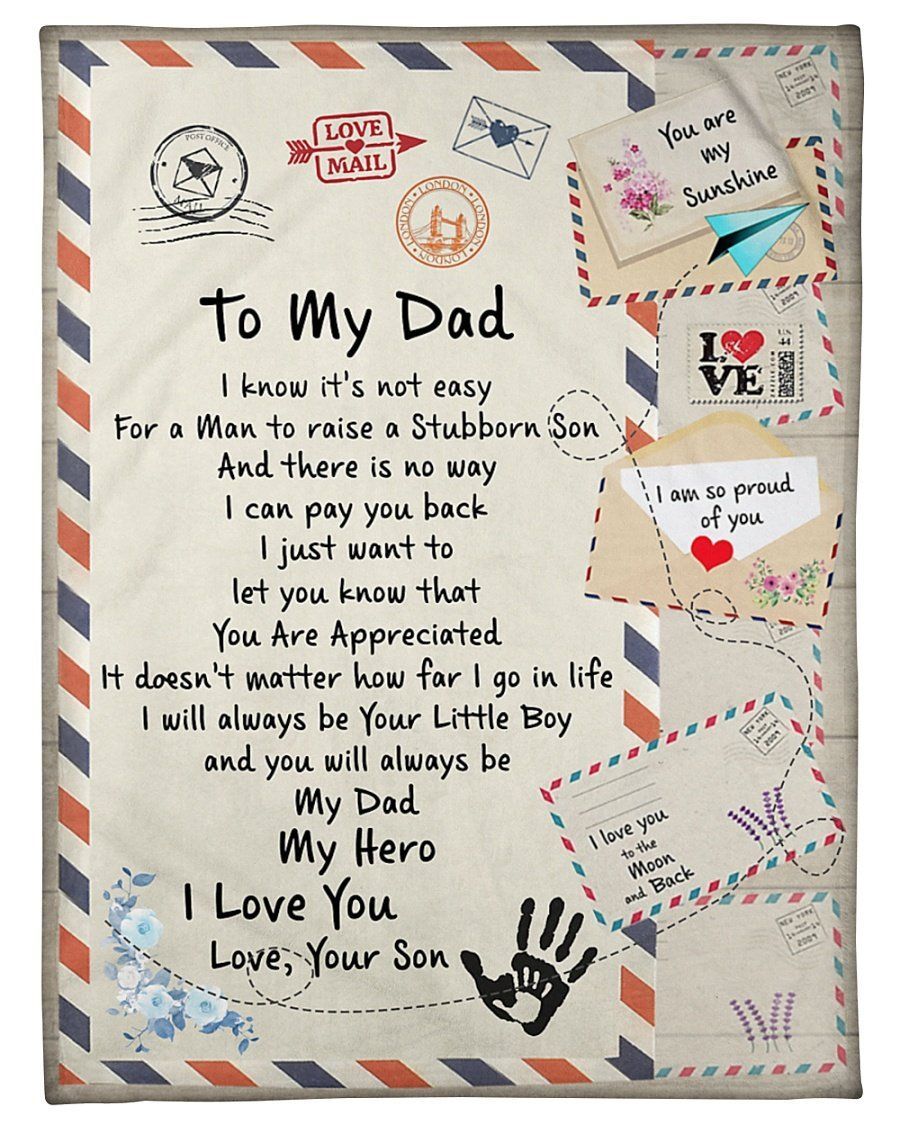 POST OFFICE
MAIL
LOVE
MAIL
LONDON LONDON LONDON LONDON
To My Dad
I know it's not easy
For a Man to raise a Stubborn Son
And there is no way
I can pay you back
I just want to
let you know that
You Are Appreciated
It doesn't matter how far I go in life
I will always be Your Little Boy
and you will always be
My Dad
My Hero
I Love You
Love, Your Son
NEW YORK
2009
You are
my
Sunshine
2009
LOVE
U.S.
44
I am so proud
of you
NEW YORK
2009
I love you
to the
Moon
and Back
NEW YORK
2009